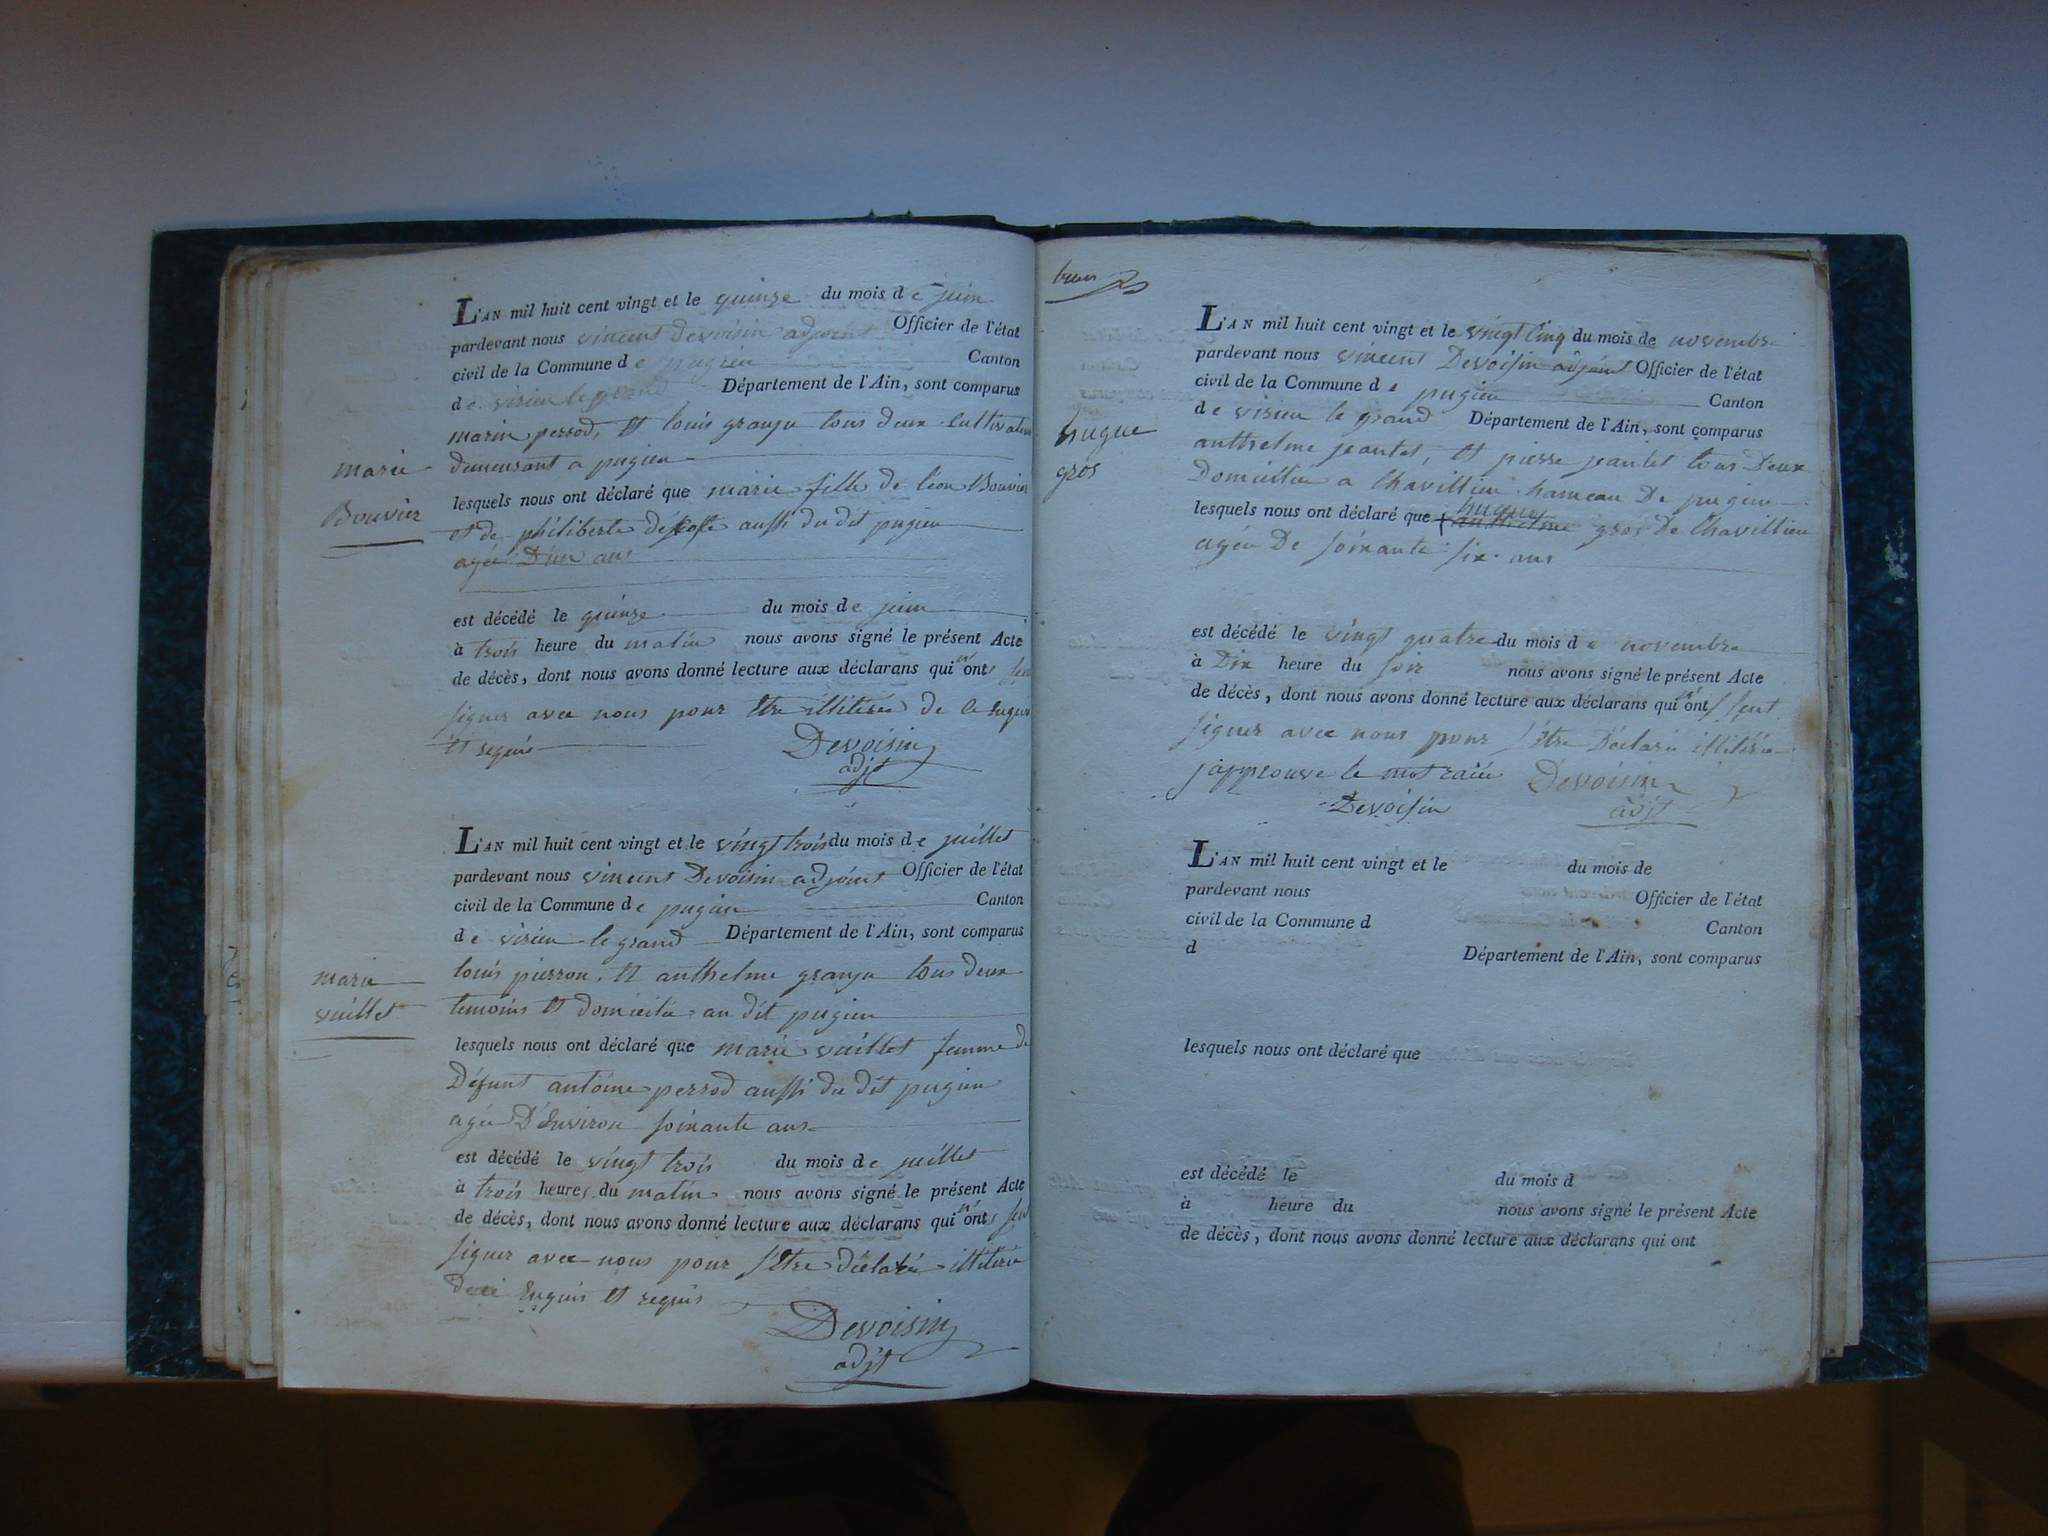 L'AN mil huit cent vingt et le quinze du mois de juin
pardevant nous vincent devoisin adjoint Officier de l'état
civil de la Commune de pugieu Canton
de virieu le grand Département de l'Ain, sont comparus
marin perrod, et louis granju tous deux cultivateurs
demeurant a pugieu
marie
Bouvier
lesquels nous ont déclaré que marie fille de léon Bouvier
et de philiberte aussi du dit pugieu
agée D'un ans
est décédé le quinze du mois de juin
à trois heure du matin nous avons signé le présent Acte
de décès, dont nous avons donné lecture aux déclarans qui n'ont seu
signer avec nous pour être illitérés de ce enquis
et requis Devoisin
adjt
L'AN mil huit cent vingt et le vingt trois du mois de juillet
pardevant nous vincent Devoisin adjoint Officier de l'état
civil de la Commune de pugieu Canton
de virieu le grand Département de l'Ain, sont comparus
louis pierron, et anthelme granju tous deux
temoins et domicilié au dit pugieu
marie
vuillet
lesquels nous ont déclaré que marie vuillet femme de
Défunt antoine perrod aussi du dit pugieu
agée D'Environ soixante ans
est décédé le vingt trois du mois de juillet
à trois heures du matin nous avons signé le présent Acte
de décès, dont nous avons donné lecture aux déclarans qui n'ont seu
signer avec nous pour s'être déclaré illitéré
De ce Enquis et requis
Devoisin
adjt
L'AN mil huit cent vingt et le vingt cinq du mois de novembre
pardevant nous vincent Devoisin adjoint Officier de l'état
civil de la Commune de pugieu Canton
de virieu le grand Département de l'Ain, sont comparus
anthelme jeantet, et pierre jeantet tous Deux
Domicilié a Chavillieu hameau De pugieu
hugue
gros
lesquels nous ont déclaré que anthelme hugue gros De Chavillieu
agée De soixante six ans
est décédé le vingt quatre du mois de novembre
à Dix heure du soir nous avons signé le présent Acte
de décès, dont nous avons donné lecture aux déclarans qui n'ont seut
signer avec nous pour s'être Déclaré illitéré
japprouve le mot raiié Devoisin
Devoisin adjt
L'AN mil huit cent vingt et le du mois de
pardevant nous Officier de l'état
civil de la Commune d Canton
d Département de l'Ain, sont comparus
lesquels nous ont déclaré que
est décédé le du mois d
à heure du nous avons signé le présent Acte
de décès, dont nous avons donné lecture aux déclarans qui ont